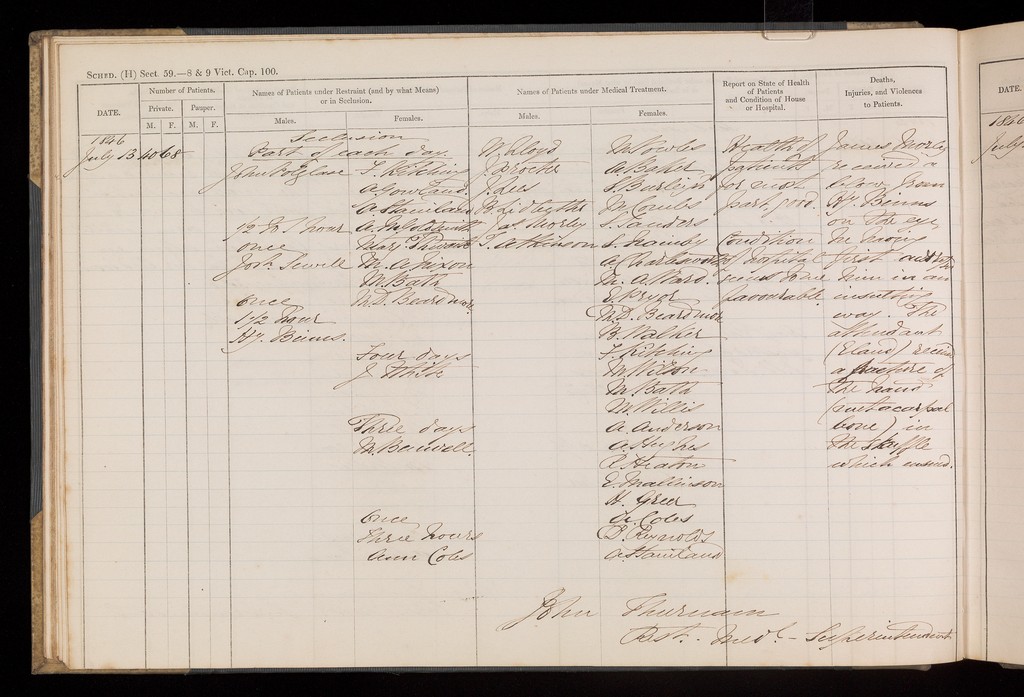 SCHED. (H) Sect. 59.—8 & 9 Vict. Cap. 100.
DATE.
Number of Patients.
Private. Pauper.
M. F. M. F.
Names of Patients under Restraint (and by what Means)
or in Seclusion.
Males. Females.
Names of Patients under Medical Treatment.
Males. Females.
Report on State of Health
of Patients
and Condition of House
or Hospital.
Deaths,
Injuries, and Violences
to Patients.
1846
July 13 40 68
Seclusion
Part of each day.
John Polglase
1/2 to 1 hour
once
Josh. Sewell
once
1 1/2 hour
Hy. Binns.
F. Kitching
A. Gowland
A. Staniland
A. M. Goldsmith
Mary
M. A. Nixon
M. Bath
M. D. Beardmore
Four days
J. White
Three days
M. Benwell.
once
Three hours
Ann Coles
W. Lloyd
J. Procter
J. Lees
B. Lidbetter
Jas. Morley
T. Atkinson
M. Fowles
A. Baker
S. Burleigh
M. Combs
S. Sanders
S. Hamby
A. Charlesworth
M. A. Ward.
E. Pryor
M. D. Beardmore
B. Walker
F. Kitching
M. Wilson
M. Bath
M. Willis
A. Anderson
A. Hughes
Heaton
E. Mallinson
H. Greer
A. Coles
Reynolds
A. Staniland
Health of
patients
for most
part good.
Condition
of hospital
favourable
James Morley
received a
blow from
Hy. Binns
on the eye,
he having
first
him in an
insulting
way. The
attendant
(Eland) received
a fracture of
the hand
(metacarpal
bone) in
the scuffle
which ensued.
John Thurnam
Rest. Medl. Superintendent
DATE.
1846
July